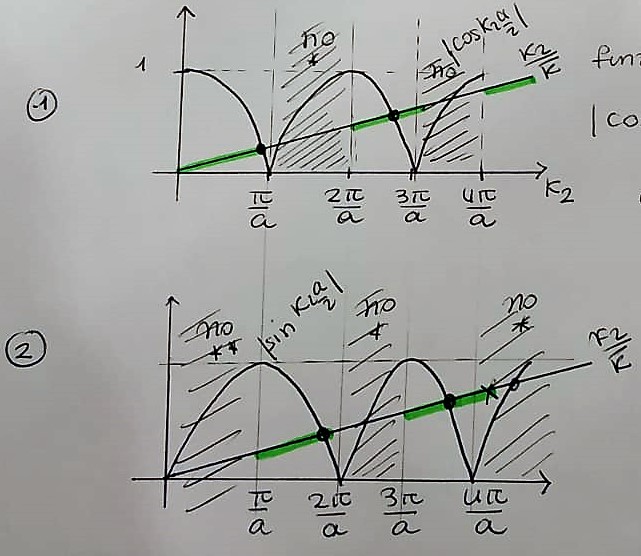 ①
1
no
*
no
|cos k₂ a/2|
k₂/k
fun
|co
π/a
2π/a
3π/a
4π/a
k₂
②
no
**
|sin k₂ a/2|
no
*
no
*
k₂/k
π/a
2π/a
3π/a
4π/a